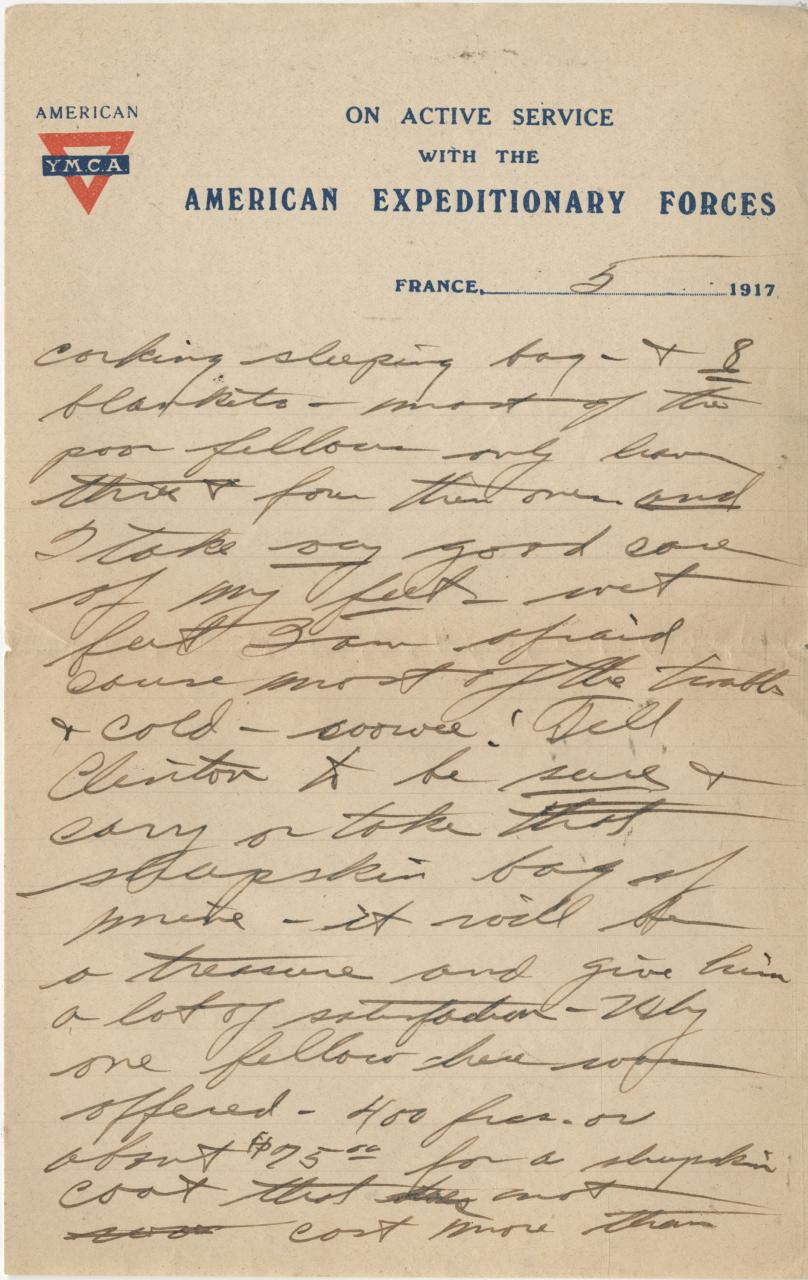 AMERICAN
Y.M.C.A.
ON ACTIVE SERVICE
WITH THE
AMERICAN EXPEDITIONARY FORCES
FRANCE, 5 1917
corking sleeping bag - & 8
blankets - most of the
poor fellows only have
three & four then over and
I take very good care
of my feet - wet
feet I am afraid
cause most of the trouble
& cold - ! Tell
Clinton to be sure &
carry or take that
sheepskin bag of
mine - it will be
a treasure and give him
a lot of satisfaction - Why
one fellow here was
offered - 400 frcs. or
about $75.00 for a sheepskin
coat that does not
cost more than